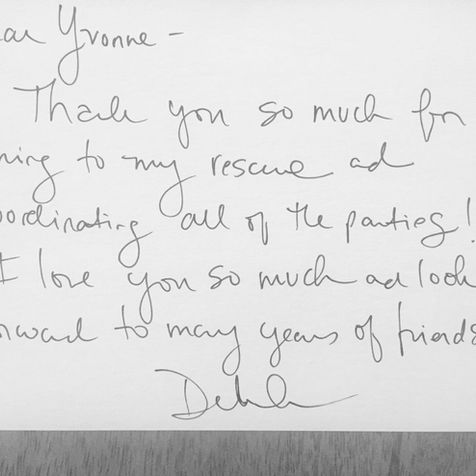 ear Yvonne -
Thank you so much for
ming to my rescue and
oordinating all of the parties!
I love you so much and look
orward to many years of friends